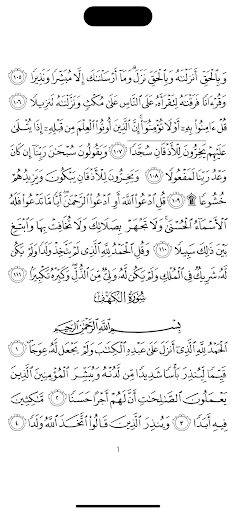 وَبِالْحَقِّ أَنزَلْنَاهُ وَبِالْحَقِّ نَزَلَ وَمَا أَرْسَلْنَاكَ إِلَّا مُبَشِّرًا وَنَذِيرًا ١٠٥
وَقُرْءَانًا فَرَقْنَاهُ لِتَقْرَأَهُ عَلَى النَّاسِ عَلَىٰ مُكْثٍ وَنَزَّلْنَاهُ تَنزِيلًا ١٠٦
قُلْ ءَامِنُوا بِهِ أَوْ لَا تُؤْمِنُوا إِنَّ الَّذِينَ أُوتُوا الْعِلْمَ مِن قَبْلِهِ إِذَا يُتْلَىٰ
عَلَيْهِمْ يَخِرُّونَ لِلْأَذْقَانِ سُجَّدًا ١٠٧ وَيَقُولُونَ سُبْحَانَ رَبِّنَا إِن كَانَ
وَعْدُ رَبِّنَا لَمَفْعُولًا ١٠٨ وَيَخِرُّونَ لِلْأَذْقَانِ يَبْكُونَ وَيَزِيدُهُمْ
خُشُوعًا ۩ ١٠٩ قُلِ ادْعُوا اللَّهَ أَوِ ادْعُوا الرَّحْمَٰنَ أَيًّا مَّا تَدْعُوا فَلَهُ
الْأَسْمَاءُ الْحُسْنَىٰ وَلَا تَجْهَرْ بِصَلَاتِكَ وَلَا تُخَافِتْ بِهَا وَابْتَغِ
بَيْنَ ذَٰلِكَ سَبِيلًا ١١٠ وَقُلِ الْحَمْدُ لِلَّهِ الَّذِي لَمْ يَتَّخِذْ وَلَدًا وَلَمْ يَكُن
لَّهُ شَرِيكٌ فِي الْمُلْكِ وَلَمْ يَكُن لَّهُ وَلِيٌّ مِّنَ الذُّلِّ وَكَبِّرْهُ تَكْبِيرًا ١١١
سُورَةُ الْكَهْفِ
بِسْمِ اللَّهِ الرَّحْمَٰنِ الرَّحِيمِ
الْحَمْدُ لِلَّهِ الَّذِي أَنزَلَ عَلَىٰ عَبْدِهِ الْكِتَابَ وَلَمْ يَجْعَل لَّهُ عِوَجًا ١
قَيِّمًا لِّيُنذِرَ بَأْسًا شَدِيدًا مِّن لَّدُنْهُ وَيُبَشِّرَ الْمُؤْمِنِينَ الَّذِينَ
يَعْمَلُونَ الصَّالِحَاتِ أَنَّ لَهُمْ أَجْرًا حَسَنًا ٢ مَّاكِثِينَ
فِيهِ أَبَدًا ٣ وَيُنذِرَ الَّذِينَ قَالُوا اتَّخَذَ اللَّهُ وَلَدًا ٤
1